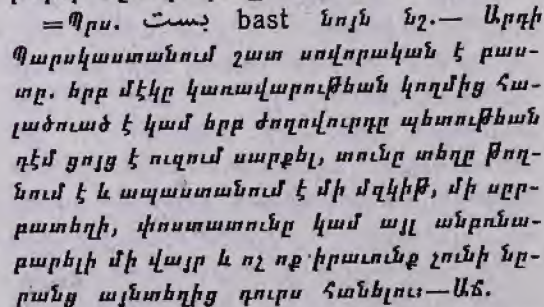 =Պրս. بست bast նոյն նշ.— Արդի
Պարսկաստանում շատ սովորական է բաս-
տը. երբ մէկը կառավարութեան կողմից հա-
լածուած է կամ երբ ժողովուրդը պետութեան
դէմ ցոյց է ուզում սարքել, տունը տեղը թող-
նում է և ապաստանում է մի մզկիթ, մի սըր-
բատեղի, փոստատունը կամ այլ անբռնա-
բարելի մի վայր և ոչ ոք իրաւունք չունի նը-
րանց այնտեղից դուրս հանելու։—ԱՃ.